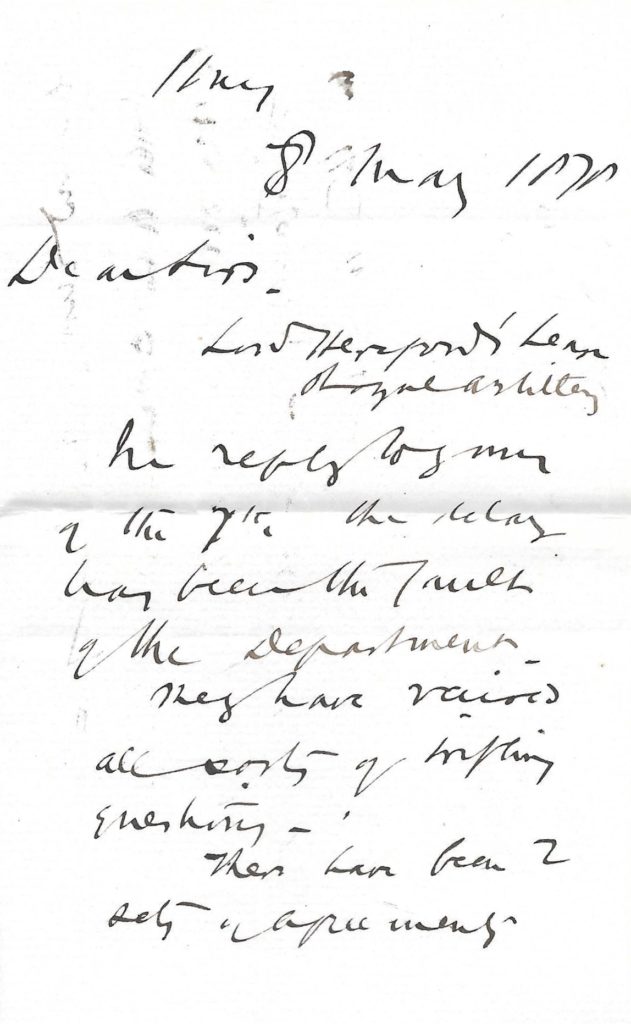 Hay
8 May 1878
Dear Sirs.
Lord Hereford's Lease
Royal Artillery
In reply to yours
of the 7th the delay
has been the fault
of the Department.
They have raised
all sorts of trifling
questions -
There have been 2
sets of agreements